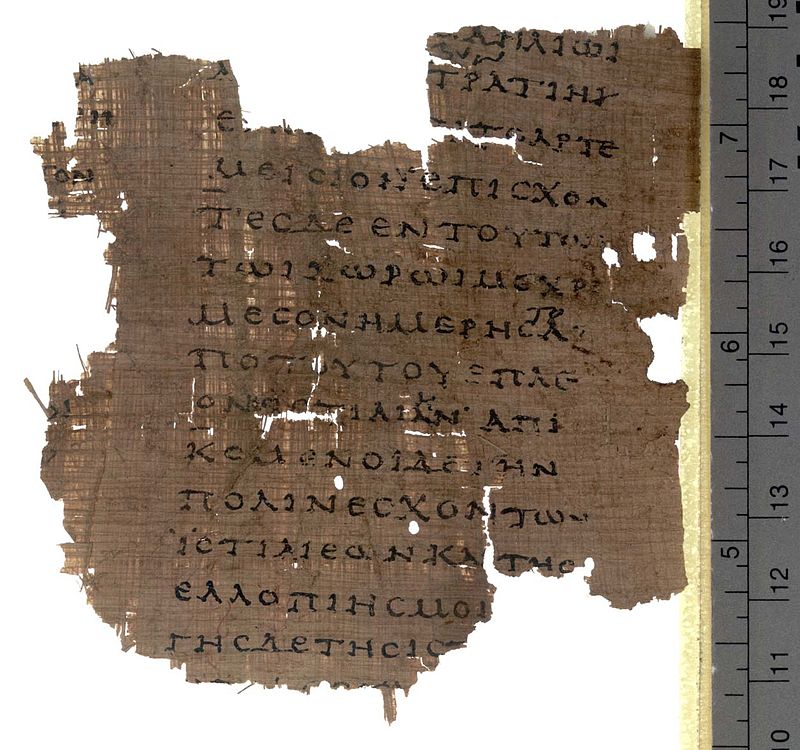 ΗΛΙΩΙ
ΤΡΑΤΙΗ
ΙΤΟΑΡΤΕ
ΜΕΙCΙΟΝ ΕΠΙCΧΟΝ
ΤΕCΔΕ ΕΝ ΤΟΥΤΩΙ
ΤΩΙΧΩΡΩΙΜΕΧΡΙ
ΜΕCΟΝΗΜΕΡΗCΑ
ΠΟΤΟΥΤΟΥ ΕΠΛΕ
ΟΝΕCΤΙΑΙΗΝ ΑΠΙ
ΚΟΜΕΝΟΙΔΕΤΗΝ
ΠΟΛΙΝΕCΧΟΝΤΩΝ
ΙCΤΙΑΙΕΩΝΚΑΙΤΗC
ΕΛΛΟΠΙΗCΜΟΙ
ΓΗCΔΕΤΗCΙC